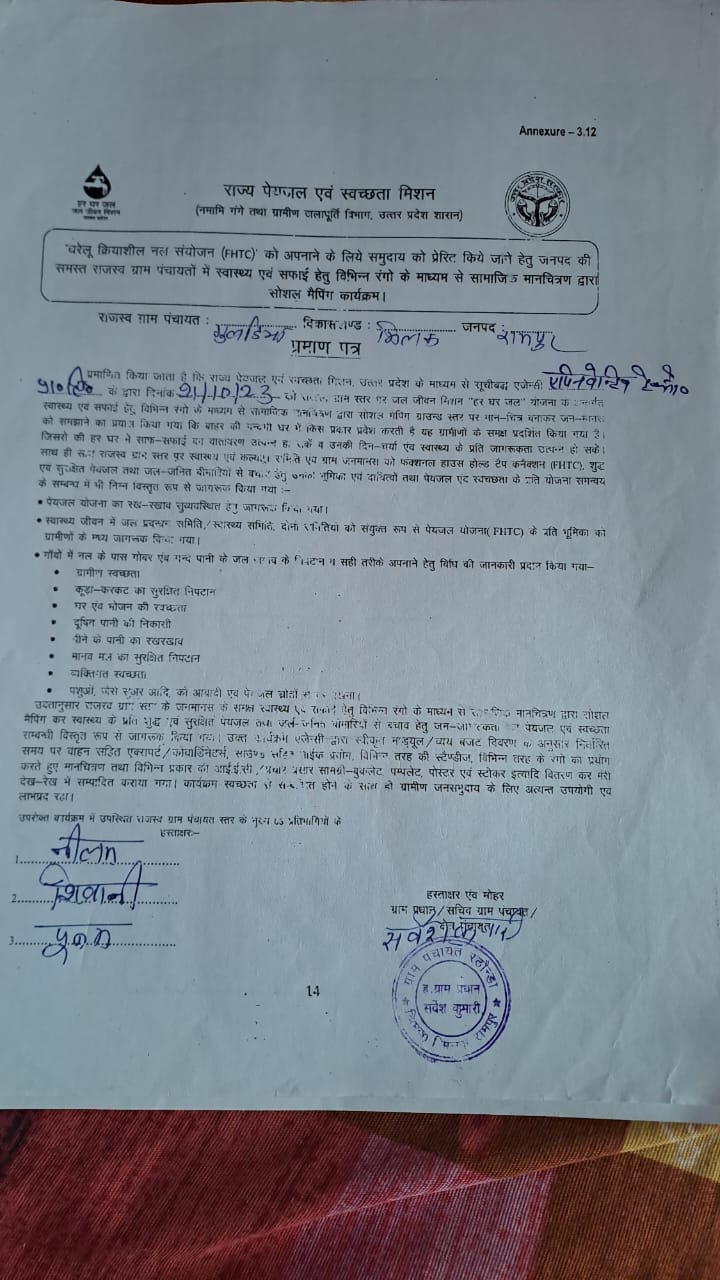 Annexure – 3.12
हर घर जल
जल जीवन मिशन
राज्य पेयजल एवं स्वच्छता मिशन
(नमामि गंगे तथा ग्रामीण जलापूर्ति विभाग, उत्तर प्रदेश शासन)
उत्तर प्रदेश सरकार
'घरेलू क्रियाशील नल संयोजन (FHTC)' को अपनाने के लिये समुदाय को प्रेरित किये जाने हेतु जनपद की
समस्त राजस्व ग्राम पंचायतों में स्वास्थ्य एवं सफाई हेतु विभिन्न रंगो के माध्यम से सामाजिक मानचित्रण द्वारा
सोशल मैपिंग कार्यक्रम।
राजस्व ग्राम पंचायत : विकासखण्ड : मिलक जनपद रामपुर
प्रमाण पत्र
प्रमाणित किया जाता है कि राज्य पेयजल एवं स्वच्छता मिशन, उत्तर प्रदेश के माध्यम से सूचीबद्ध एजेन्सी
प्रा० लि० के द्वारा दिनांक 21/10/23 को राजस्व ग्राम स्तर पर जल जीवन मिशन "हर घर जल" योजना के अन्तर्गत
स्वास्थ्य एवं सफाई हेतु विभिन्न रंगो के माध्यम से सामाजिक मानचित्रण द्वारा सोशल मैपिंग ग्राउन्ड स्तर पर मान-चित्र बनाकर जन-मानस
को समझाने का प्रयास किया गया कि बाहर की गन्दगी घर में किस प्रकार प्रवेश करती है यह ग्रामीणों के समक्ष प्रदर्शित किया गया है।
जिससे की हर घर में साफ-सफाई का वातावरण उत्पन्न हो सके व उनकी दिन-चर्या एंव स्वास्थ्य के प्रति जागरूकता उत्पन्न हो सके।
साथ ही साथ राजस्व ग्राम स्तर पर स्वास्थ्य एवं कल्याण समिति एंव ग्राम जनमानस को फंक्शनल हाउस होल्ड टैप कनैक्शन (FHTC), शुद्ध
एवं सुरक्षित पेयजल तथा जल-जनित बीमारियों से बचाव हेतु उनकी भूमिका एवं दायित्वों तथा पेयजल एंव स्वच्छता के प्रति योजना समन्वय
के सम्बन्ध में भी निम्न विस्तृत रूप से जागरूक किया गया :–
• पेयजल योजना का रख-रखाव सुव्यवस्थित हेतु जागरूक किया गया।
• स्वास्थ्य जीवन में जल प्रबन्धन समिति/स्वास्थ्य समिति, दोनो समितियों को संयुक्त रूप से पेयजल योजना(FHTC) के प्रति भूमिका को
ग्रामीणों के मध्य जागरूक किया गया।
• गाँवों में नल के पास गोबर एंव गन्दे पानी के जल के निपटान व सही तरीके अपनाने हेतु विधि की जानकारी प्रदान किया गया–
• ग्रामीण स्वच्छता
• कूड़ा-करकट का सुरक्षित निपटान
• घर एंव भोजन की स्वच्छता
• दूषित पानी की निकासी
• पीने के पानी का रखरखाव
• मानव मल का सुरक्षित निपटान
• व्यक्तिगत स्वच्छता
• पशुओं, जैसे सुअर आदि, को आबादी एवं पेयजल स्रोतों से
उक्तानुसार राजस्व ग्राम स्तर के जनमानस के समक्ष स्वास्थ्य एवं सफाई हेतु विभिन्न रंगो के माध्यम से सामाजिक मानचित्रण द्वारा सोशल
मैपिंग कर स्वास्थ्य के प्रति शुद्ध एवं सुरक्षित पेयजल तथा जल-जनित बीमारियों से बचाव हेतु जन-जागरूकता पेयजल एवं स्वच्छता
सम्बन्धी विस्तृत रूप से जागरूक किया गया। उक्त कार्यक्रम एजेन्सी द्वारा स्वीकृत माड्यूल/व्यय बजट विवरण के अनुसार निर्धारित
समय पर वाहन सहित एक्सपर्ट/कोर्वाडिनेटर्स, साउण्ड सहित माईक प्रयोग, विभिन्न तरह की स्टैण्डीज, विभिन्न तरह के रंगो का प्रयोग
करते हुए मानचित्रण तथा विभिन्न प्रकार की आई.ई.सी./प्रचार प्रसार सामग्री-बुकलेट, पम्पलेट, पोस्टर एवं स्टीकर इत्यादि वितरण कर मेरी
देख-रेख में सम्पादित कराया गया। कार्यक्रम स्वच्छता से सम्बन्धित होने के साथ ही ग्रामीण जनसमुदाय के लिए अत्यन्त उपयोगी एवं
लाभप्रद रहा।
उपरोक्त कार्यक्रम में उपस्थित राजस्व ग्राम पंचायत स्तर के मुख्य 03 प्रतिभागियों के
हस्ताक्षर:–
1. नीलम
2. शिवानी
3. पूनम
हस्ताक्षर एंव मोहर
ग्राम प्रधान/सचिव ग्राम पंचायत/
ग्राम पंचायत
ह.ग्राम प्रधान
सर्वेश कुमारी
मिलक रामपुर
14